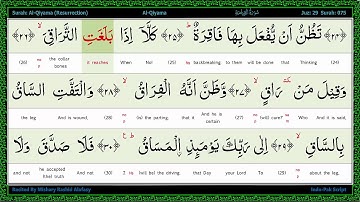 Surah: Al-Qiyama (Resurrection) Al-Qiyama Juz: 29 Surah: 075
تَظُنُّ اَنْ يُّفْعَلَ بِهَا فَاقِرَةٌ ﴿٢٥﴾ كَلَّاۤ اِذَا بَلَغَتِ التَّرَاقِيَ ﴿٢٦﴾
(26) the collar bones it reaches When No! (25) backbreaking to them will be done that Thinking (24)
وَقِيْلَ مَنْ رَاقٍ ﴿٢٧﴾ وَظَنَّ اَنَّهُ الْفِرَاقُ ﴿٢٨﴾ وَالْتَفَّتِ السَّاقُ
the leg And is wound, (28) is the parting. that it And he is certain (27) will cure? Who And it is said,
بِالسَّاقِ ﴿٢٩﴾ اِلٰى رَبِّكَ يَوْمَئِذِ اۨلْمَسَاقُ ﴿٣٠﴾ فَلَا صَدَّقَ وَلَا
and not he accepted the truth And not (30) will be the driving. that Day your Lord To (29)
Recited By Mishary Rashid Alafasy Indo-Pak Script